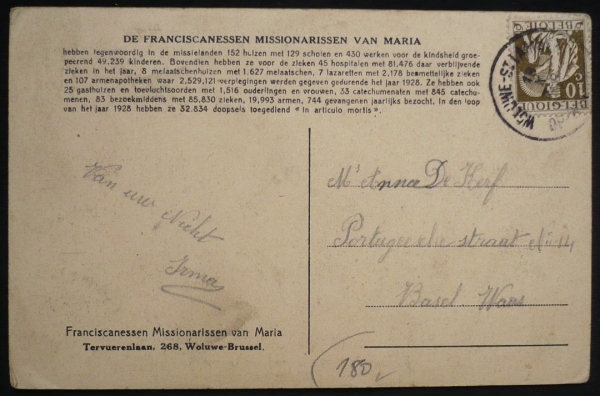 DE FRANCISCANESSEN MISSIONARISSEN VAN MARIA
hebben tegenwoordig in de missielanden 152 huizen met 129 scholen en 430 werken voor de kindsheid groe-
peerend 49,239 kinderen. Bovendien hebben ze voor de zieken 45 hospitalen met 81,476 daar verblijvende
zieken in het jaar, 8 melaatschenhuizen met 1.627 melaatschen, 7 lazaretten met 2,178 besmettelijke zieken
en 107 armenapotheken waar 2,529,121 verplegingen werden gegeven gedurende het jaar 1928. Ze hebben ook
25 gasthuizen en toevluchtsoorden met 1,516 ouderlingen en vrouwen, 33 catechumenaten met 845 catechu-
menen, 83 bezoekmiddens met 85,830 zieken, 19,993 armen, 744 gevangenen jaarlijks bezocht. In den loop
van het jaar 1928 hebben ze 32.834 doopsels toegediend « in articulo mortis ».
BELGIE
10c
BELGIQUE
WOLUWE-ST
Van uw Nicht
Irma
Mr Anna De Kerf
straat
Basel. Waas
Franciscanessen Missionarissen van Maria
Tervuerenlaan, 268, Woluwe-Brussel.
180